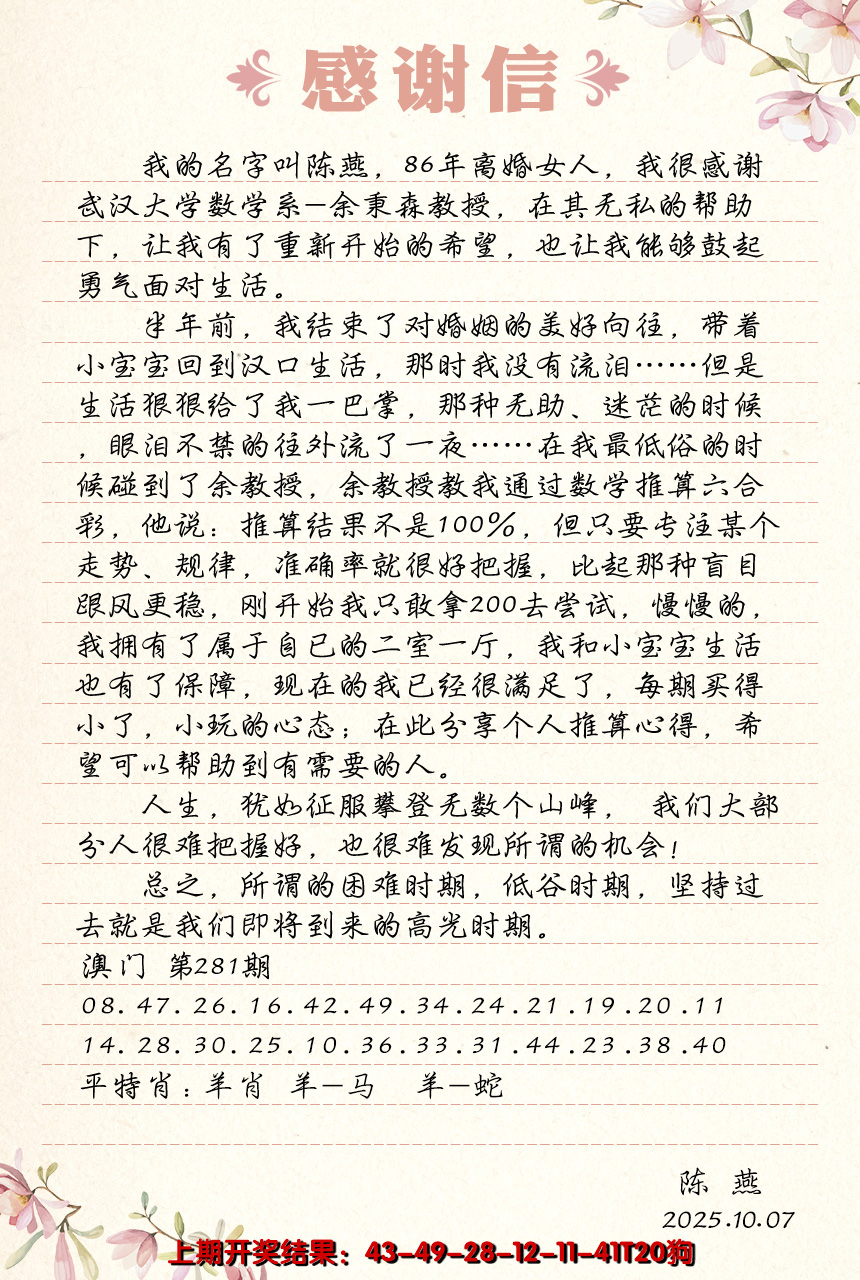 感谢信
我的名字叫陈燕，86年离婚女人，我很感谢
武汉大学数学系—余秉森教授，在其无私的帮助
下，让我有了重新开始的希望，也让我能够鼓起
勇气面对生活。
半年前，我结束了对婚姻的美好向往，带着
小宝宝回到汉口生活，那时我没有流泪……但是
生活狠狠给了我一巴掌，那种无助、迷茫的时候
，眼泪不禁的往外流了一夜……在我最低俗的时
候碰到了余教授，余教授教我通过数学推算六合
彩，他说：推算结果不是100%，但只要专注某个
走势、规律，准确率就很好把握，比起那种盲目
跟风更稳，刚开始我只敢拿200去尝试，慢慢的，
我拥有了属于自已的二室一厅，我和小宝宝生活
也有了保障，现在的我已经很满足了，每期买得
小了，小玩的心态；在此分享个人推算心得，希
望可以帮助到有需要的人。
人生，犹如征服攀登无数个山峰， 我们大部
分人很难把握好，也很难发现所谓的机会！
总之，所谓的困难时期，低谷时期，坚持过
去就是我们即将到来的高光时期。
澳门 第281期
08.47.26.16.42.49.34.24.21.19.20.11
14.28.30.25.10.36.33.31.44.23.38.40
平特肖：羊肖 羊—马 羊—蛇
陈 燕
2025.10.07
上期开奖结果：43-49-28-12-11-41T20狗